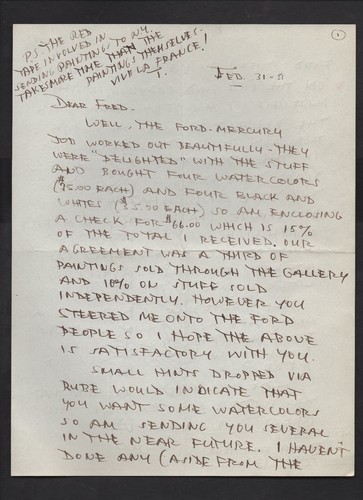 P.S. THE RED
TAPE INVOLVED IN
SENDING PAINTINGS TO N.Y.
TAKES MORE TIME THAN THE
PAINTINGS THEMSELVES.
VIVE LA FRANCE!
1
FEB. 31-51
DEAR FRED.
WELL, THE FORD-MERCURY
JOB WORKED OUT BEAUTIFULLY - THEY
WERE "DELIGHTED" WITH THE STUFF
AND BOUGHT FOUR WATERCOLORS
($75.00 EACH) AND FOUR BLACK AND
WHITES ($35.00 EACH) SO AM ENCLOSING
A CHECK FOR $66.00 WHICH IS 15%
OF THE TOTAL I RECEIVED. OUR
AGREEMENT WAS A THIRD OF
PAINTINGS SOLD THROUGH THE GALLERY
AND 10% ON STUFF SOLD
INDEPENDENTLY. HOWEVER YOU
STEERED ME ONTO THE FORD
PEOPLE SO I HOPE THE ABOVE
IS SATISFACTORY WITH YOU.
SMALL HINTS DROPPED VIA
RUBE WOULD INDICATE THAT
YOU WANT SOME WATERCOLORS
SO AM SENDING YOU SEVERAL
IN THE NEAR FUTURE. I HAVEN'T
DONE ANY (ASIDE FROM THE